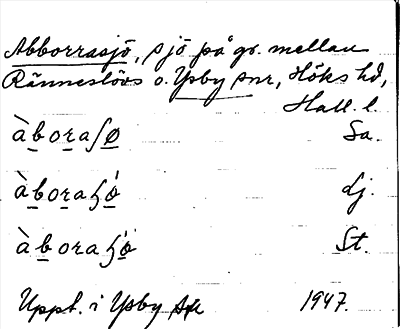 Abborrasjö, sjö på gr. mellan
Ränneslövs o. Ysby snr, Höks hd,
Hall. l.
àboraʃø Sa.
àboraɧǿ dj.
àboraɧǿ St.
Uppt. i Ysby 1947.